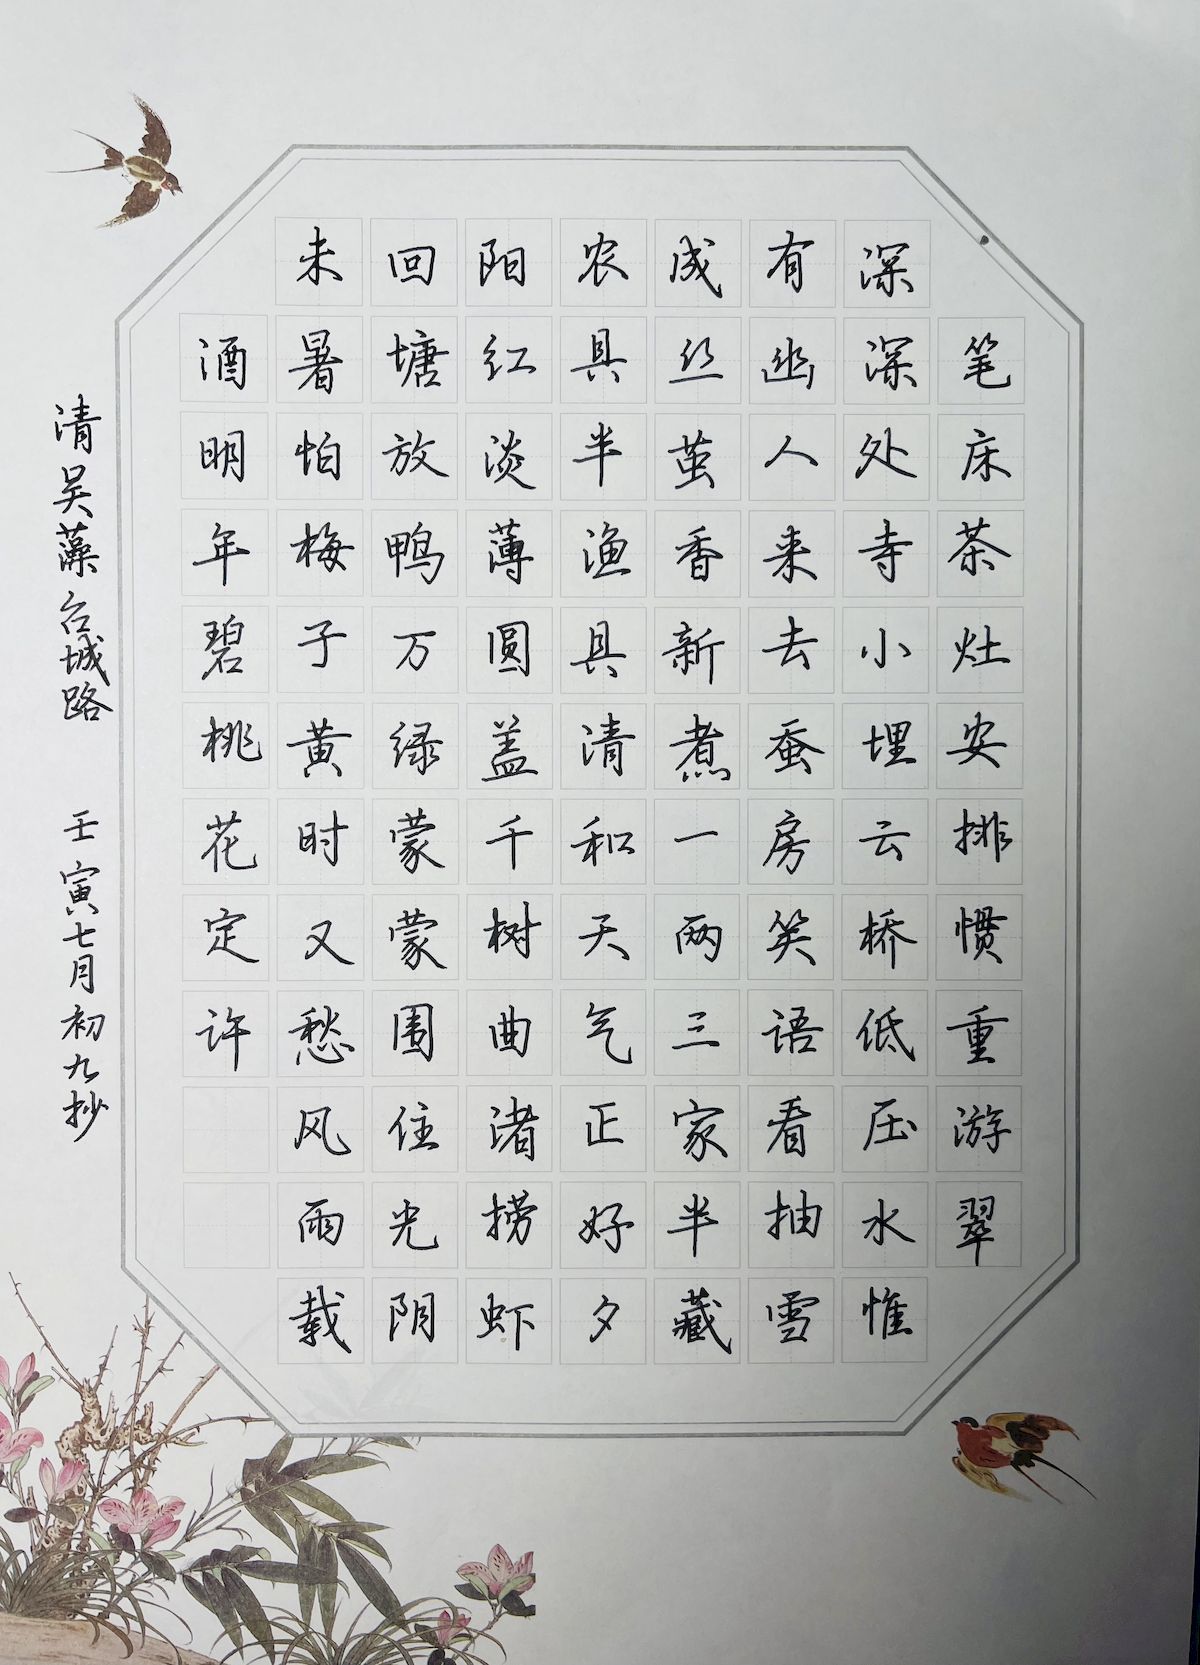 笔床茶灶安排惯重游翠
深深处寺小埋云桥低压水惟
有幽人来去蚕房笑语看抽雪
成丝茧香新煮一两三家半藏
农具半渔具清和天气正好夕
阳红淡薄圆盖千树曲渚捞虾
回塘放鸭万绿蒙蒙围住光阴
未暑怕梅子黄时又愁风雨载
酒明年碧桃花定许
清吴藻台城路 壬寅七月初九抄